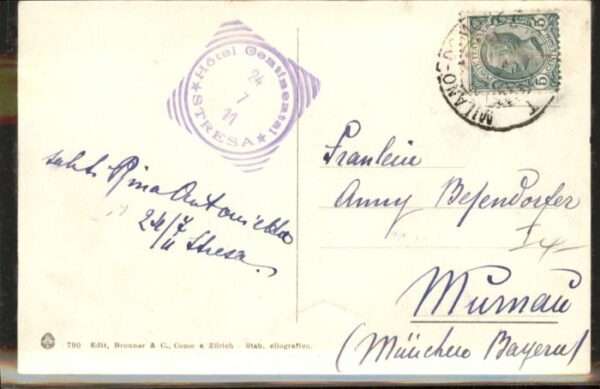 Hôtel Continental
24
7
11
STRESA
MILANO-
5 5
Fraulein
Anny Besendorfer
Murnau
(München Bayern)
saluti Rina Antonietta
24/7
11 Stresa
790 Edit. Brunner & C., Como e Zürich - Stab. eliografico.